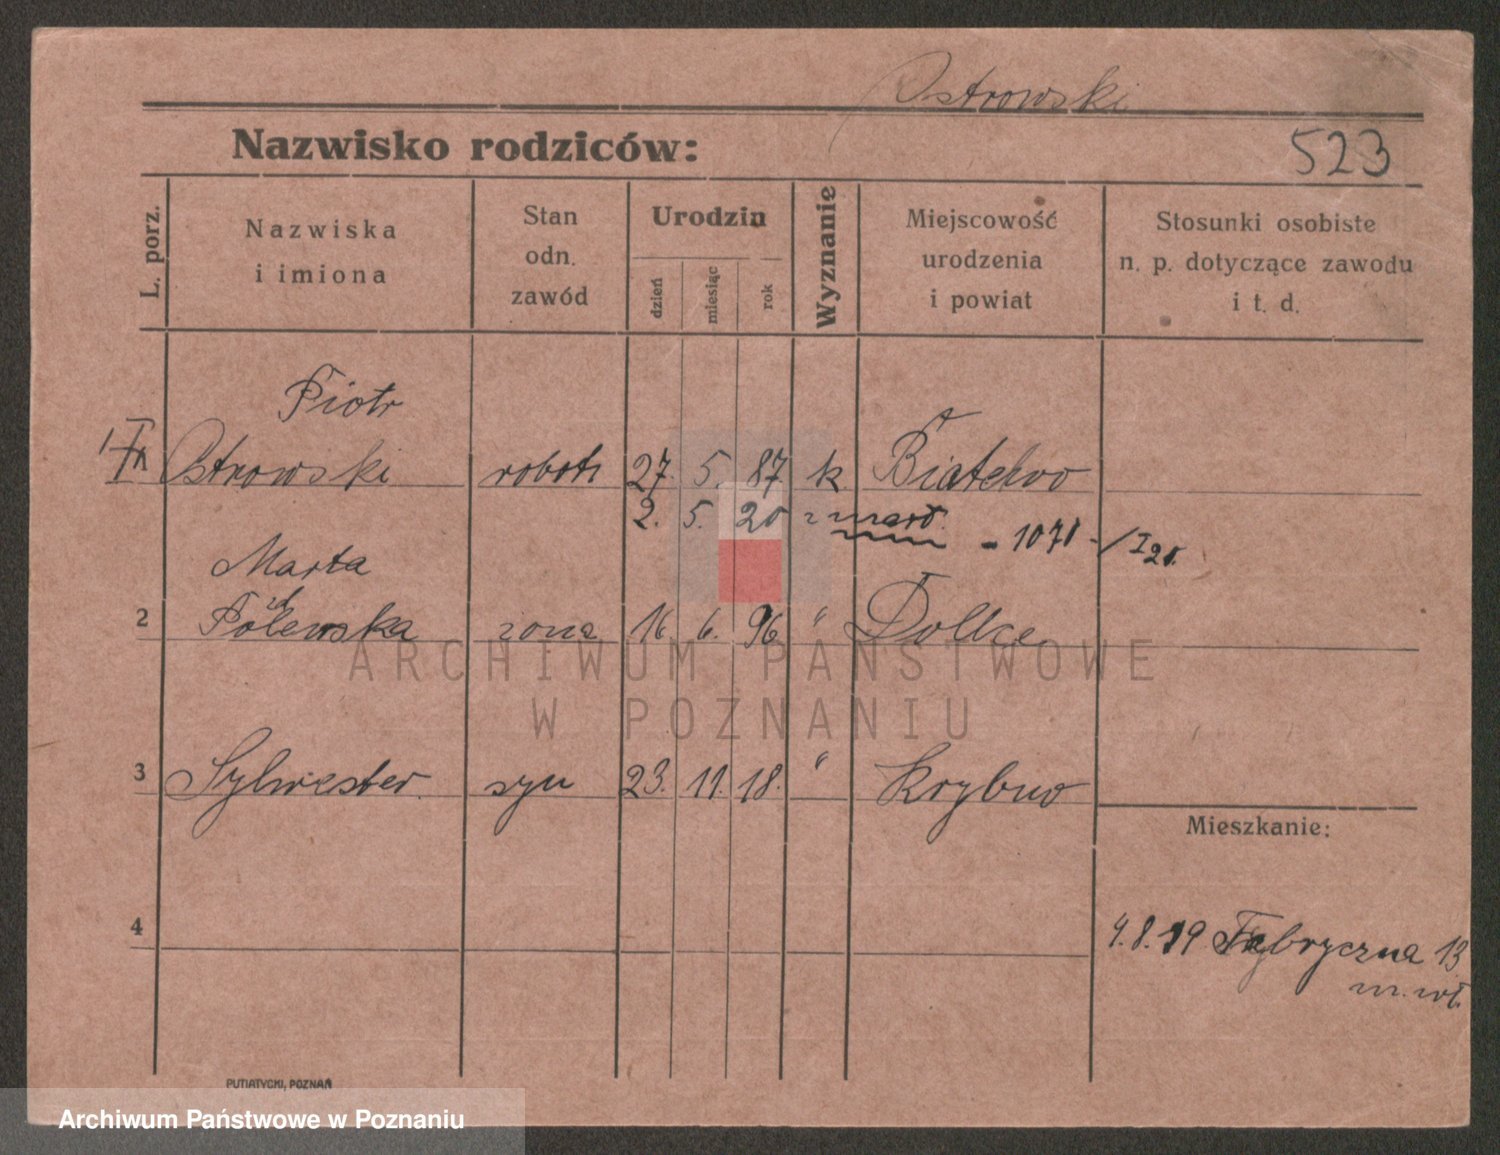 Ostrowski
Nazwisko rodziców:
523
L. porz.
Nazwiska
i imiona
Stan
odn.
zawód
Urodzin
dzień
miesiąc
rok
Wyznanie
Miejscowość
urodzenia
i powiat
Stosunki osobiste
n. p. dotyczące zawodu
i t. d.
Piotr
Ostrowski robotn 27. 5. 87 k
2. 5. 20 zmarł. - 1071 -/I 20.
Marta
2 zd Polewska zona 16 6. 96 "
3 Sylwester syn 23. 11. 18. "
Mieszkanie:
4
4.8.19 Fabryczna 13
PUTIATYCKI, POZNAŃ
ARCHIWUM PAŃSTWOWE
W POZNANIU
Archiwum Państwowe w Poznaniu